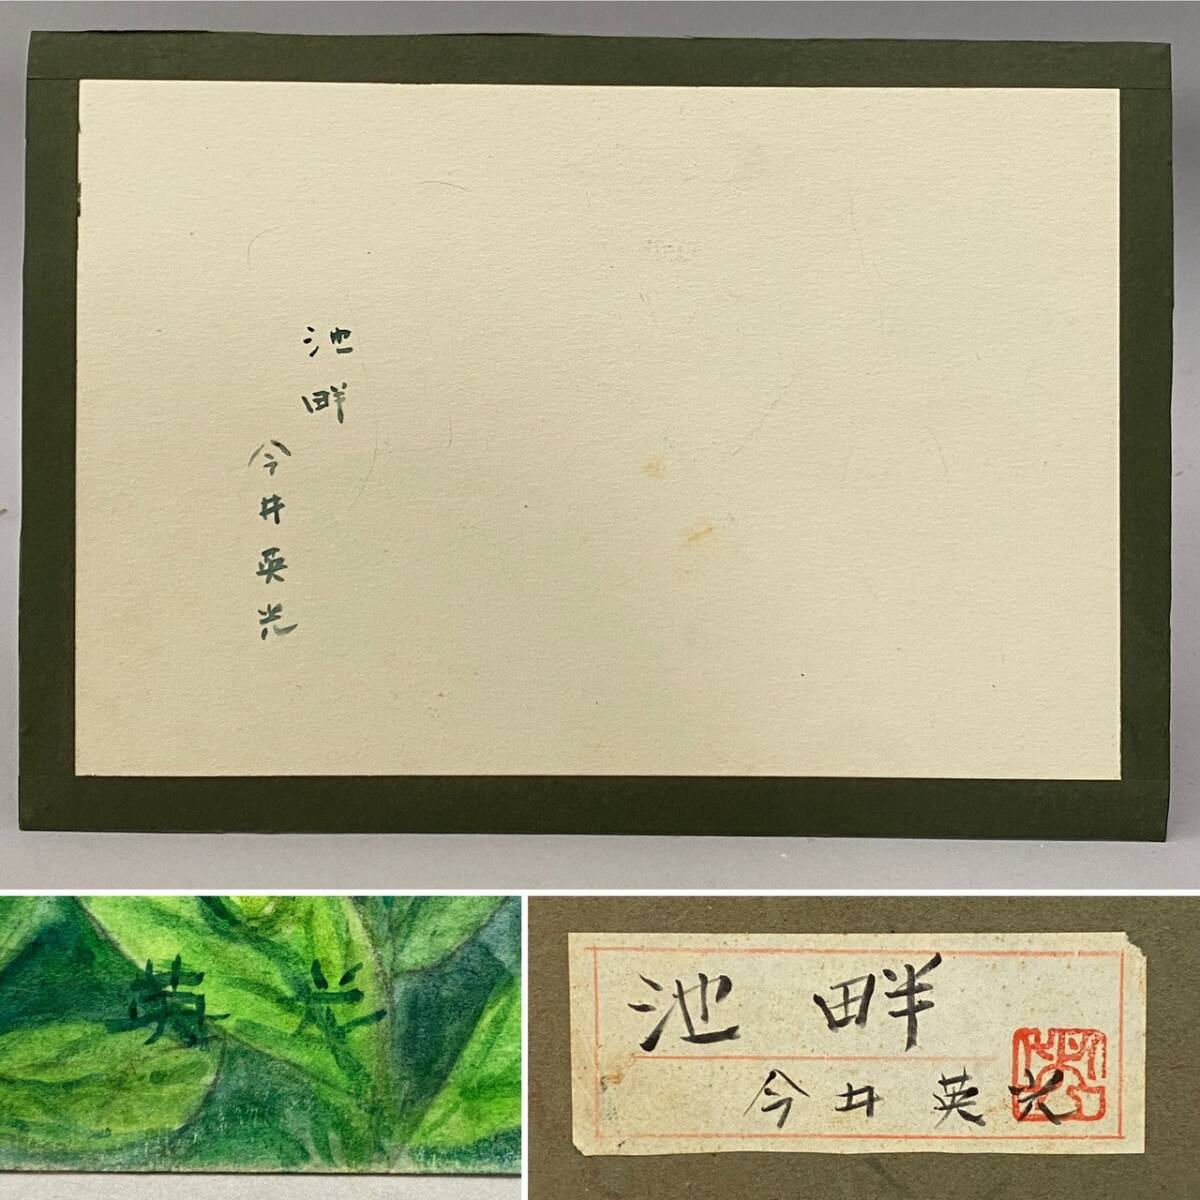 池畔
今井英光
英光
池畔
今井英光